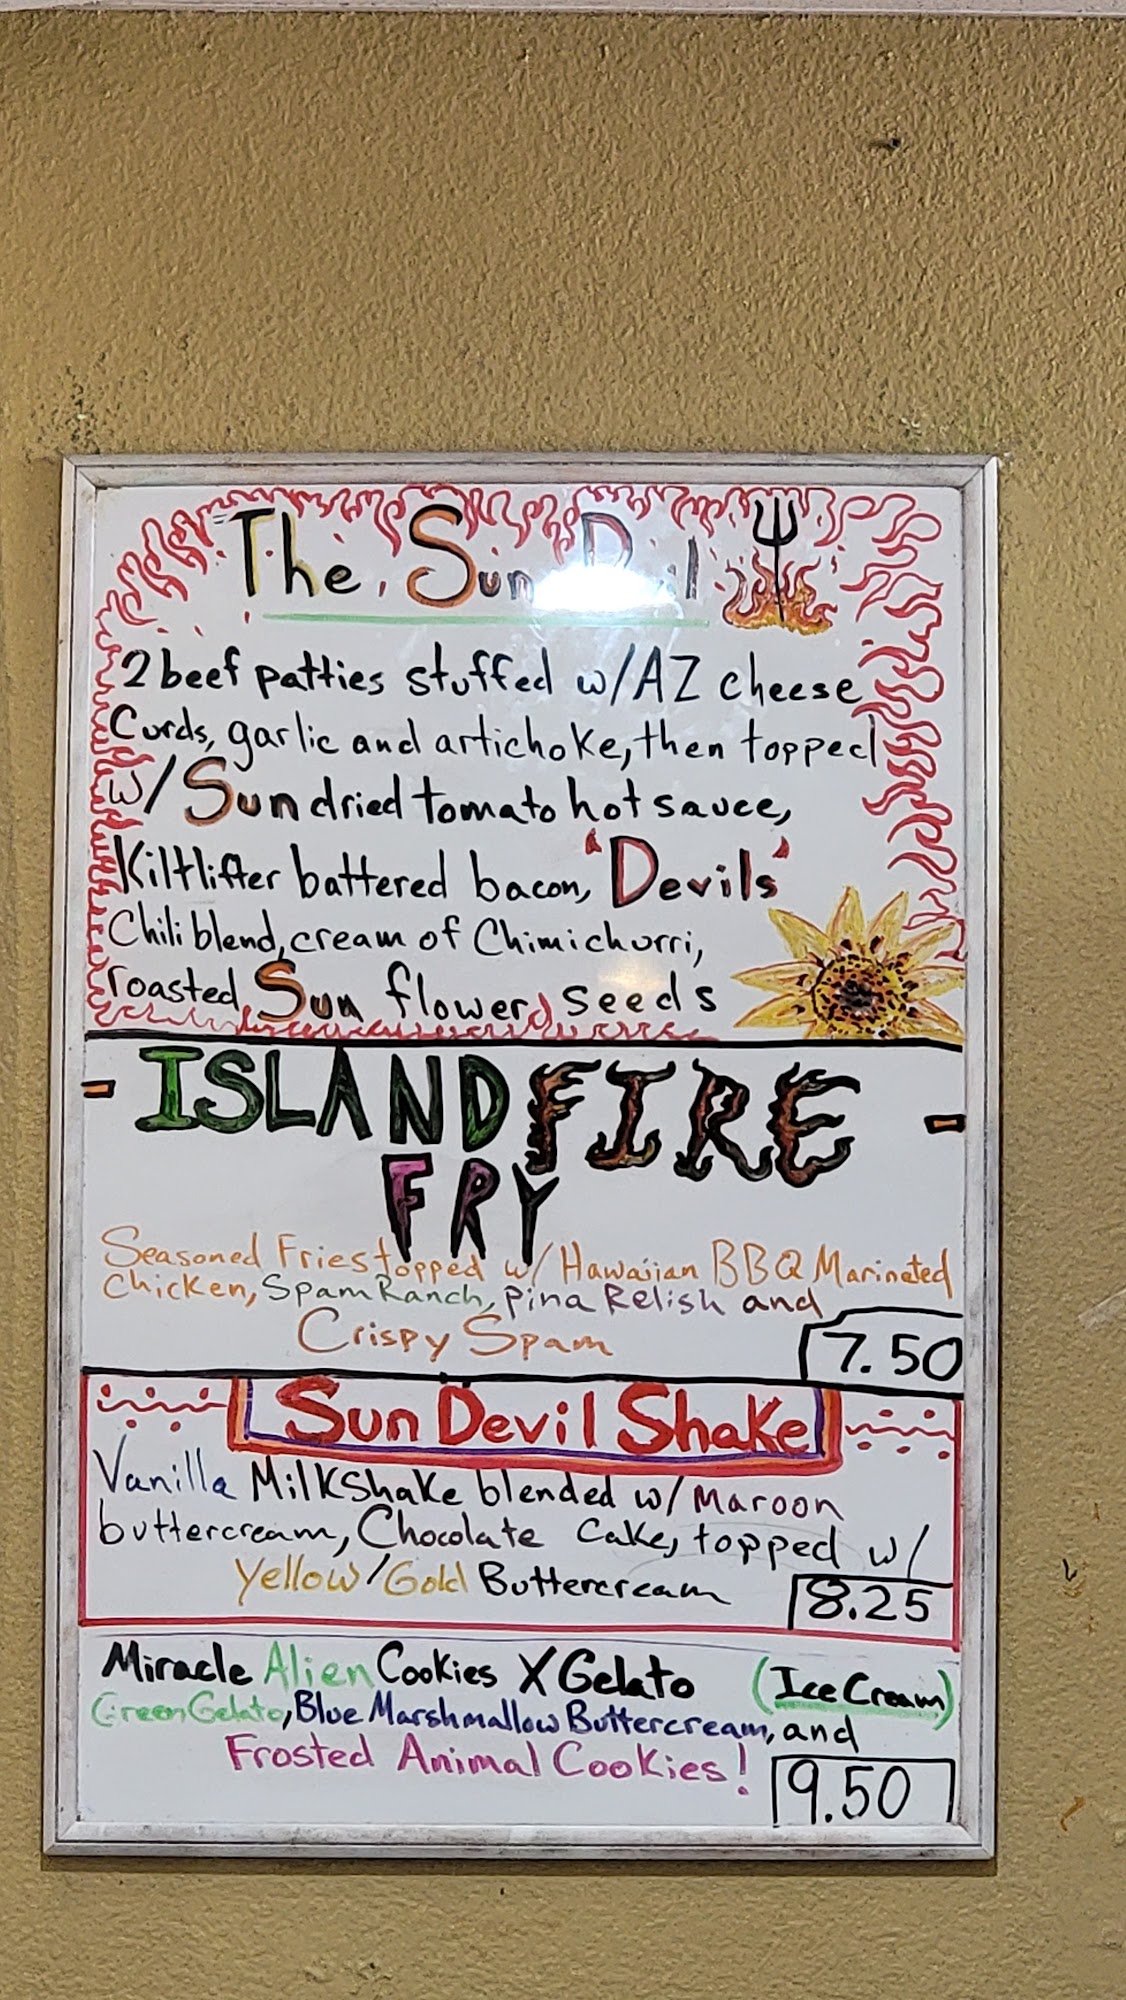 The Sun
2 beef patties stuffed w/AZ cheese
Curds, garlic and artichoke, then topped
w/ Sun dried tomato hot sauce,
Kiltlifter battered bacon, 'Devils'
Chili blend, cream of Chimichurri,
roasted Sun flower seeds
- ISLAND FIRE -
FRY
Seasoned Fries topped w/ Hawaiian BBQ Marinated
Chicken, Spam Ranch, Pina Relish and
Crispy Spam
7.50
Sun Devil Shake
Vanilla MilkShake blended w/ Maroon
buttercream, Chocolate Cake, topped w/
Yellow/Gold Buttercream
8.25
Miracle Alien Cookies X Gelato (Ice Cream)
Green Gelato, Blue Marshmallow Buttercream, and
Frosted Animal Cookies!
9.50